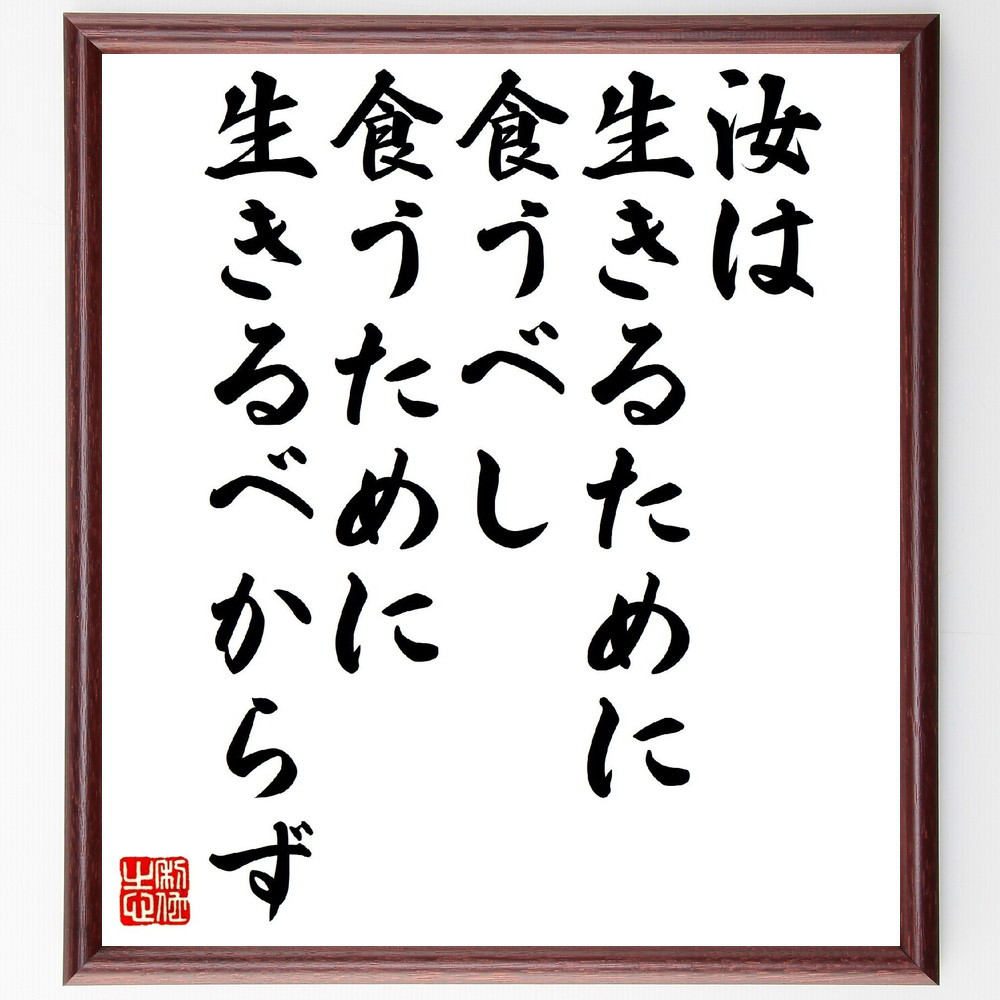 汝は
生きるために
食うべし
食うために
生きるべからず